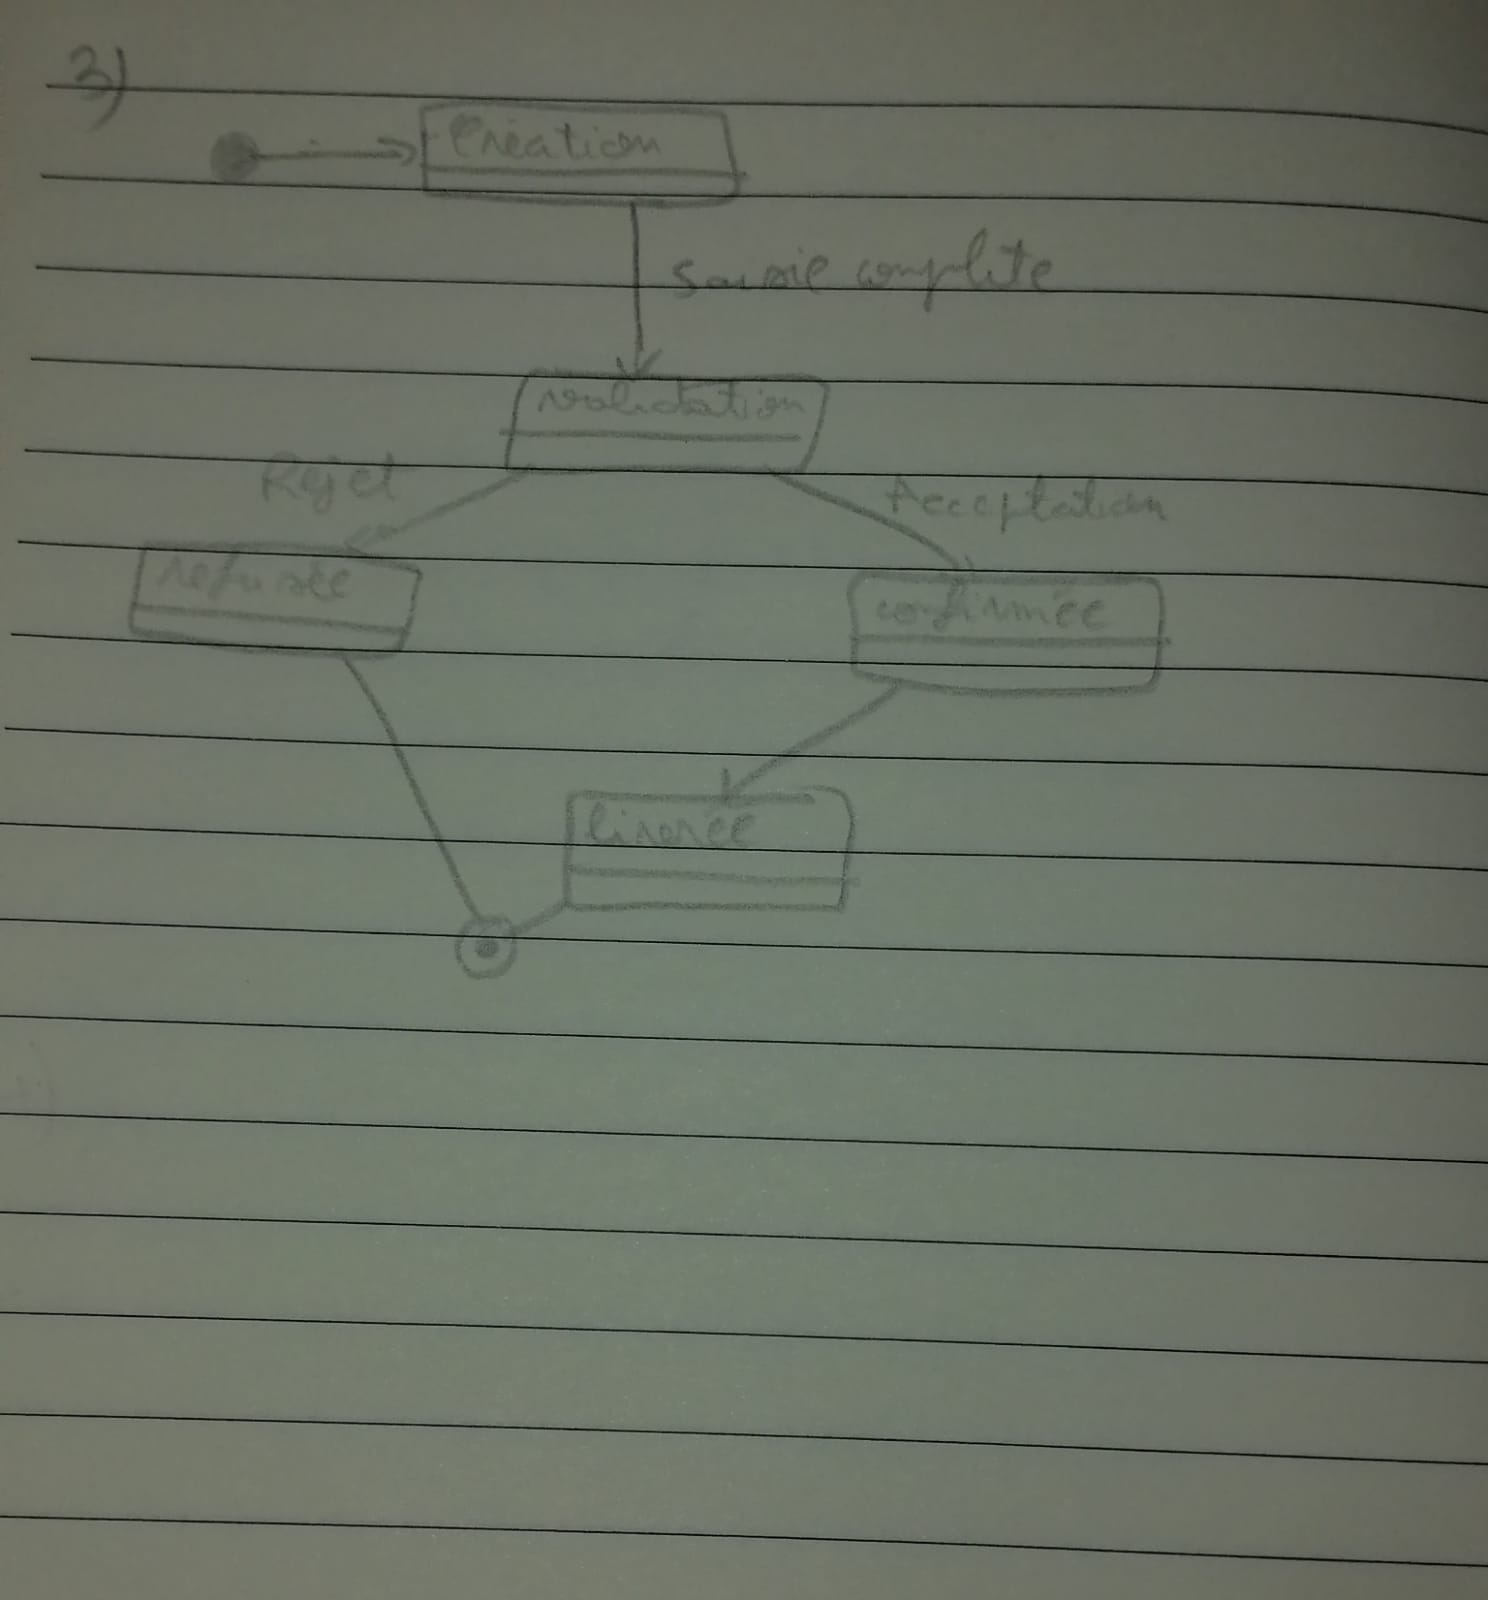 3)
Création
Saisie complète
validation
Rejet
Acceptation
refusée
confirmée
livrée